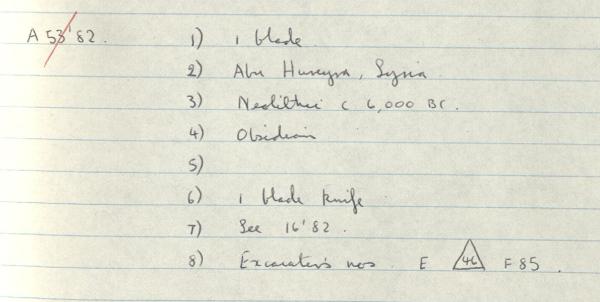 A 53'82. 1) 1 blade
2) Abu Hureyra, Syria
3) Neolithic c 6,000 BC.
4) Obsidian
5)
6) 1 blade knife
7) See 16'82.
8) Excavator's nos. E 46 F 85.